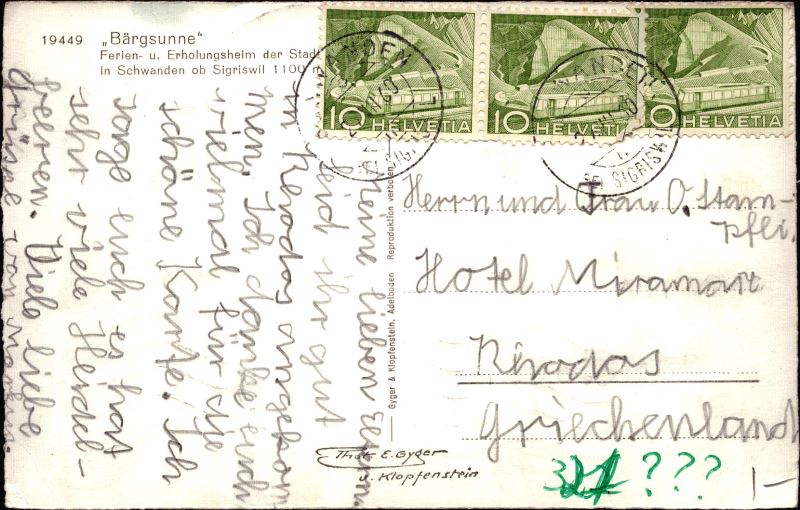 19449 „Bärgsunne“
Ferien- u. Erholungsheim der Stadt
in Schwanden ob Sigriswil 1100
10 HELVETIA
10 HELVETIA
10 HELVETIA
Meine lieben Eltern
Seid ihr gut
in Rhodos angekom-
men. Ich danke euch
vielmal für die
schöne Karte. Ich
sage euch es hat
sehr viele Heidel-
beeren. Viele liebe
Grüsse von
Gyger & Klopfenstein, Adelboden Reproduktion verboten
Herrn und Frau O. Stam-
pfli.
Hotel Miramare
Rhodos
Griechenland
Phot. E. Gyger
u. Klopfenstein
321 ???
1-